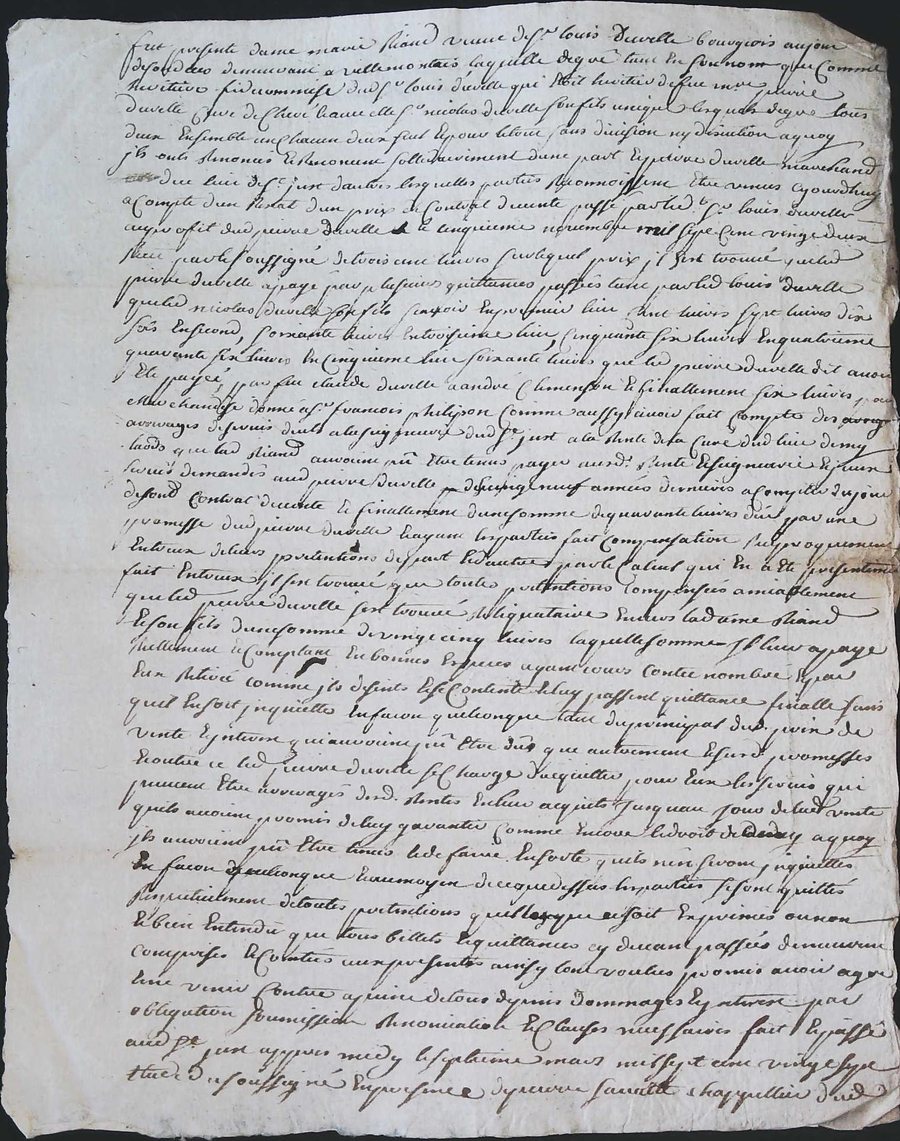 fut presente dame marie Riand veuve de Sr louis Duville bourgeois
demeurant a villemontais laquelle degré tant en son nom que comme
heritiere fideicommise dud Sr louis duville qui etoit heritier de feu mre pierre
duville Curé de et Sr nicolas duville son fils unique lesquels degré tous
deux Ensemble un chacun deux seul et pour le tout sans division ny discution a quoy
ils onts Renoncés et Renoncent sollidairement dune part et pierre duville marchand
du lieu de St just dautre lesquelles parties Reconnoissent Etre venus a jourdhuy
a Compte dun Restat dun prix en Contrat de vente passé par led. Sr louis duville
au profit dud pierre duville le cinquieme novembre mil sept Cent vingt deux
Receu par le soussigné de trois cent livres sur lequel prix il sest trouvé que led
pierre duville a payé par plusieurs quittances passées tant par led louis duville
que led nicolas duville son fils scavoir En premier lieu livres sept livres dix
sols En second, soixante livres En troisieme lieu, Cinquante six livres En quatrieme
quarante six livres En cinquieme lieu soixante livres que led pierre duville dit avoir
Eté payée par feu claude duville a andré Clemenson et finallement six livres pour
Marchandise donné a Sr francois philipon Comme aussy avoir fait Compte des
arrerages de servis deubs a la seigneurie dud St just a la Rente de la Cure dud lieu de
laods que lad Riand auroint pû Etre tenus payer ausd. Rente et seigneurie et
servis demandés aud pierre duville de vingt neuf années dernieres a Compter du jour
dud Contrat de vente et finallement dune somme de quarante livres düe par une
promesse dud pierre duville Et ayant les parties fait Compensation Reciproquement
Entreux de leurs pretentions de part et dautres par le Calcul qui En a Eté presentement
fait Entreux il sest trouvé que toutes pretentions Compensées amiablement
que led pierre duville sest trouvé Reliquataire Envers lad dame Riand
Et son fils dune somme de vingt cinq livres laquelle somme il leur a payé
Réellement a Comptant En bonnes Especes ayant cours Contée nombrée Et par
Eux Retirée comme ils disents Et se Contentent Et luy passent quittance finalle sans
quil En soit inquietté En facon quelconque tant du principal dud. prix de
vente Et jnterets qui auroint pû Etre dûs que autrement Et sud. promesses
Et outre ce led pierre duville se Charge dacquitter pour Eux les servis qui
peuvent Etre arreragés desd. Rentes En leur acquit jusquau jour de lad vente
quils avoint promis de luy garantir Comme Encore le droit de a quoy
ils auroint pû Etre tenus et de faire En sorte quils nen seront jnquiettés
En facon quelconque Et au moyen de ce que dessus les parties se sont quittés
Respectivement de toutes pretentions quelconque ce soit Exprimées ou non
Et bien Entendu que tous billets Et quittances cy devant passées demeurent
comprises Et Contées aux presentes ainsy tout voulu promis avoir agré
Et ne venir Contre a peine de tous depens dommages Et jnterets par
obligation soumission Renonciation Et Clauses necessaires fait Et passé
aud St just appres midy le septieme mars mil sept cent vingt sept
soussigné En presence de pierre chappellier dud